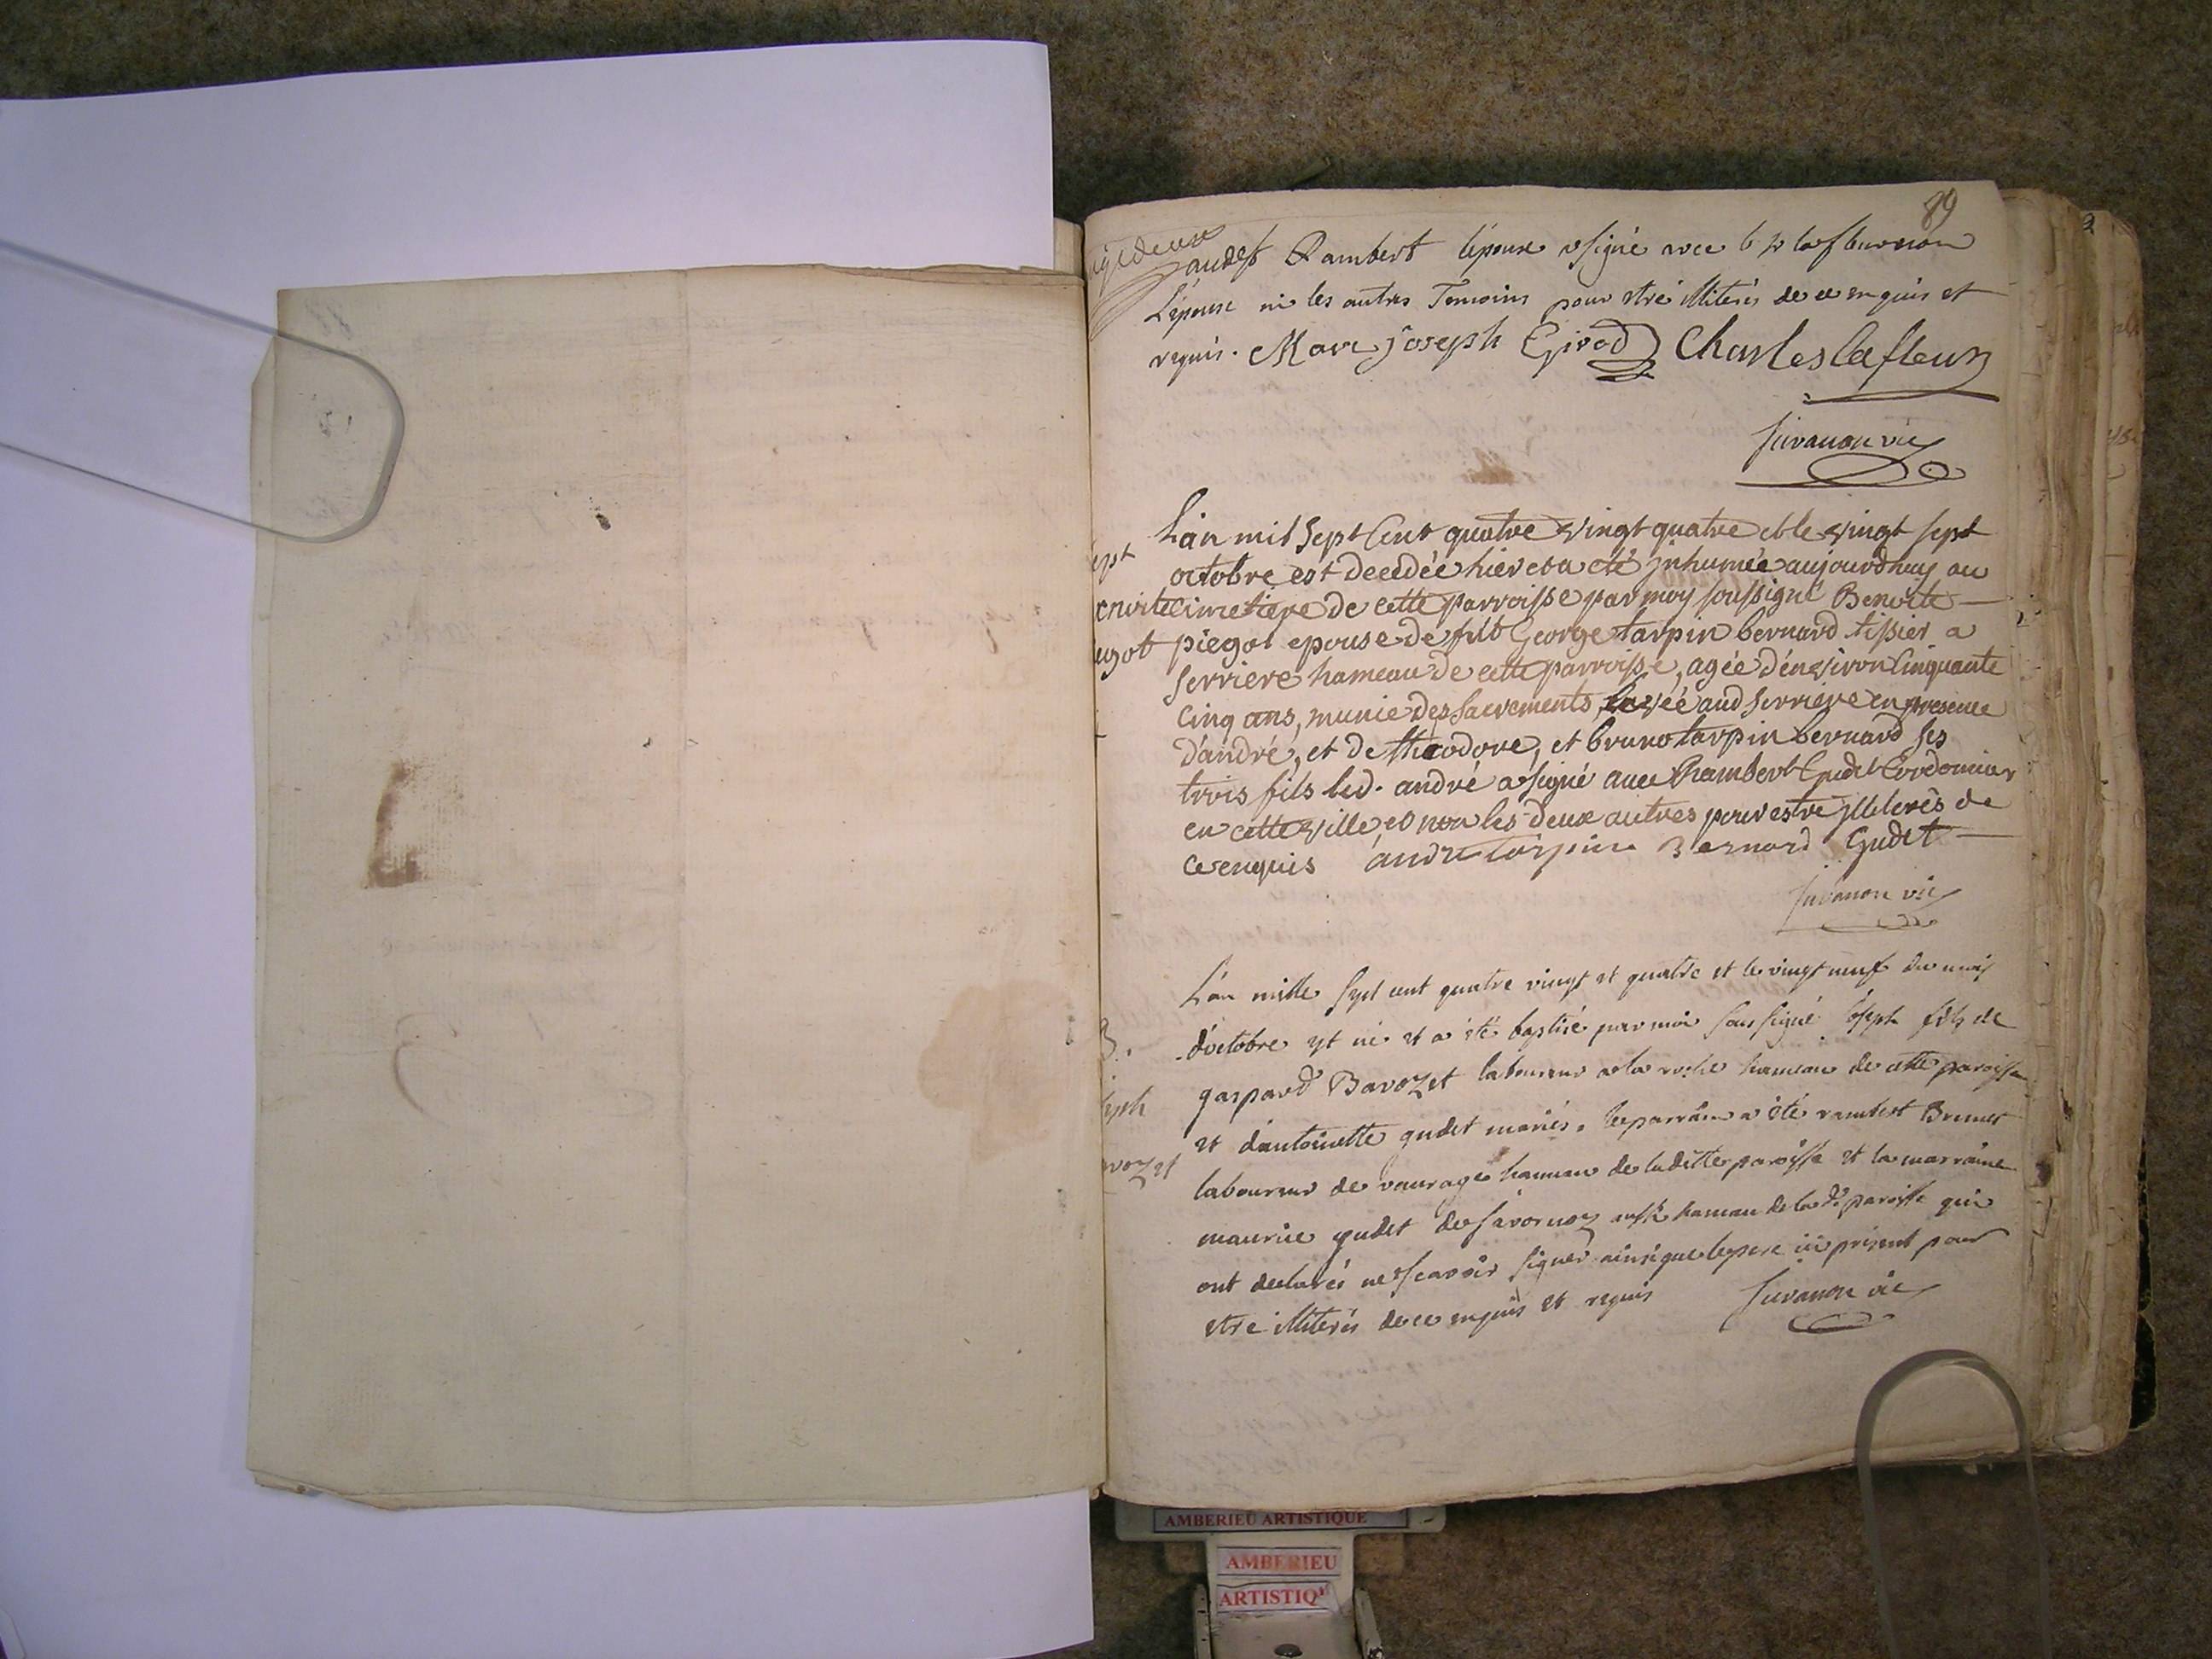 89
audet Rambert l'époux a signé avec le sr lafleur non
L'épouse ni les autres Temoins pour etre illiterés de ce enquis et
requis. Marc joseph Girod Charles lafleur
Juvanon vic
L'an mil Sept Cent quatre vingt quatre et le vingt sept
octobre est decedée hier et a eté inhumée aujourdhuy au
cimetiere de cette parroisse par moy soussigné Benoite
piegot epouse de fût George tarpin bernard tissier a
Serriere hameau de cette parroisse, agée d'environ Cinquante
Cinq ans, munie des Sacrements, levée aud Serriere en presence
d'andré, et de theodore, et bruno tarpin bernard ses
trois fils led. andré a signé avec Rambert Gudet Cordonnier
en cette ville, et non les deux autres pour estre illiterés de
ce enquis andre tarpin Bernard Gudet
Juvanon vic
L'an mille sept cent quatre vingt et quatre et le vingt neuf du mois
d'octobre est né et a été baptisé par moi soussigné joseph fils de
gaspard Bavozet laboureur a la roche hameau de cette paroisse
et d'antoinette gudet mariés. le parrain a été rambert Brunet
laboureur de vourage hameau de laditte paroisse et la marraine
maurice gudet de savornoz aussi hameau de lad. paroisse qui
ont declarés ne scavoir signer ainsi que le pere ici present pour
etre illiterés de ce enquis et requis Juvanon vic
AMBERIEU ARTISTIQUE
AMBERIEU
ARTISTIQ